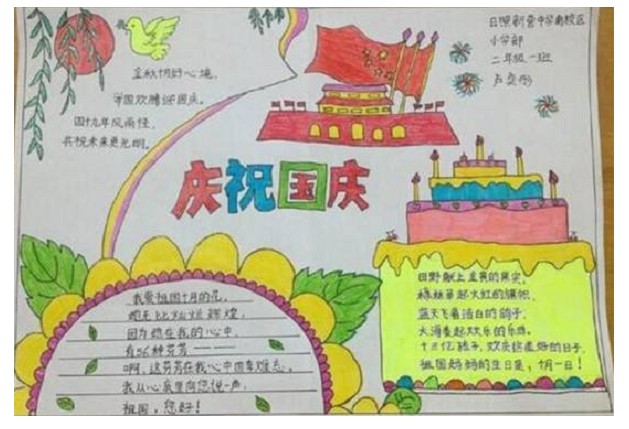 金秋十月好心境,
举国欢腾迎国庆。
四十九年风雨径,
共祝未来更光明。
日照新营中学南校区
小学部
二年级一班
庆祝国庆
我爱祖国十月的花,
因为你在我的心中,
有56种芬芳————
啊,这芬芳在我心中回荡难忘。
我从心底里向您说一声,
祖国,您好!
田野献上金黄的果实,
枫林举起火红的旗帜,
蓝天飞着洁白的鸽子,
大海奏起欢乐的乐曲。
十三亿孩子,欢庆妈妈的日子,
祖国妈妈的生日是,十月一日!